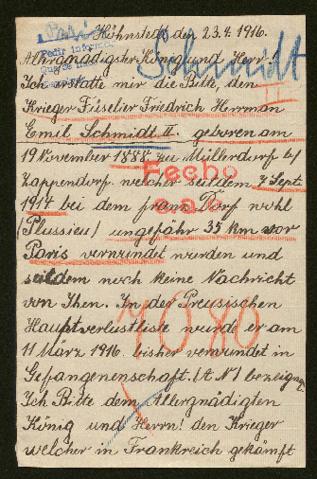 Höhnstedt den 23.4.1916.
Pedir inform
Schmidt
Allergnädigster König und Herr!
Ich erstatte mir die Bitte, den
Krieger Füselier Friedrich Herrman
Emil Schmidt II. geboren am
19 November 1888 zu Müllerdorf b/
Zappendorf welcher seit dem 7 Sept
Fecho
1914 bei dem franz Dorf wohl
(Plussieu) ungefähr 35 km vor
Paris verwundet wurden und
seitdem noch keine Nachricht
von Ihen. In der Preusischen
7080
Hauptverlustliste wurde er am
11 März 1916. bisher verwundet in
Gefangenenschaft. (A N) bezeigne
Ich Bitte dem Allergnädigten
König und Herrn! den Krieger
welcher in Frankreich gekämft